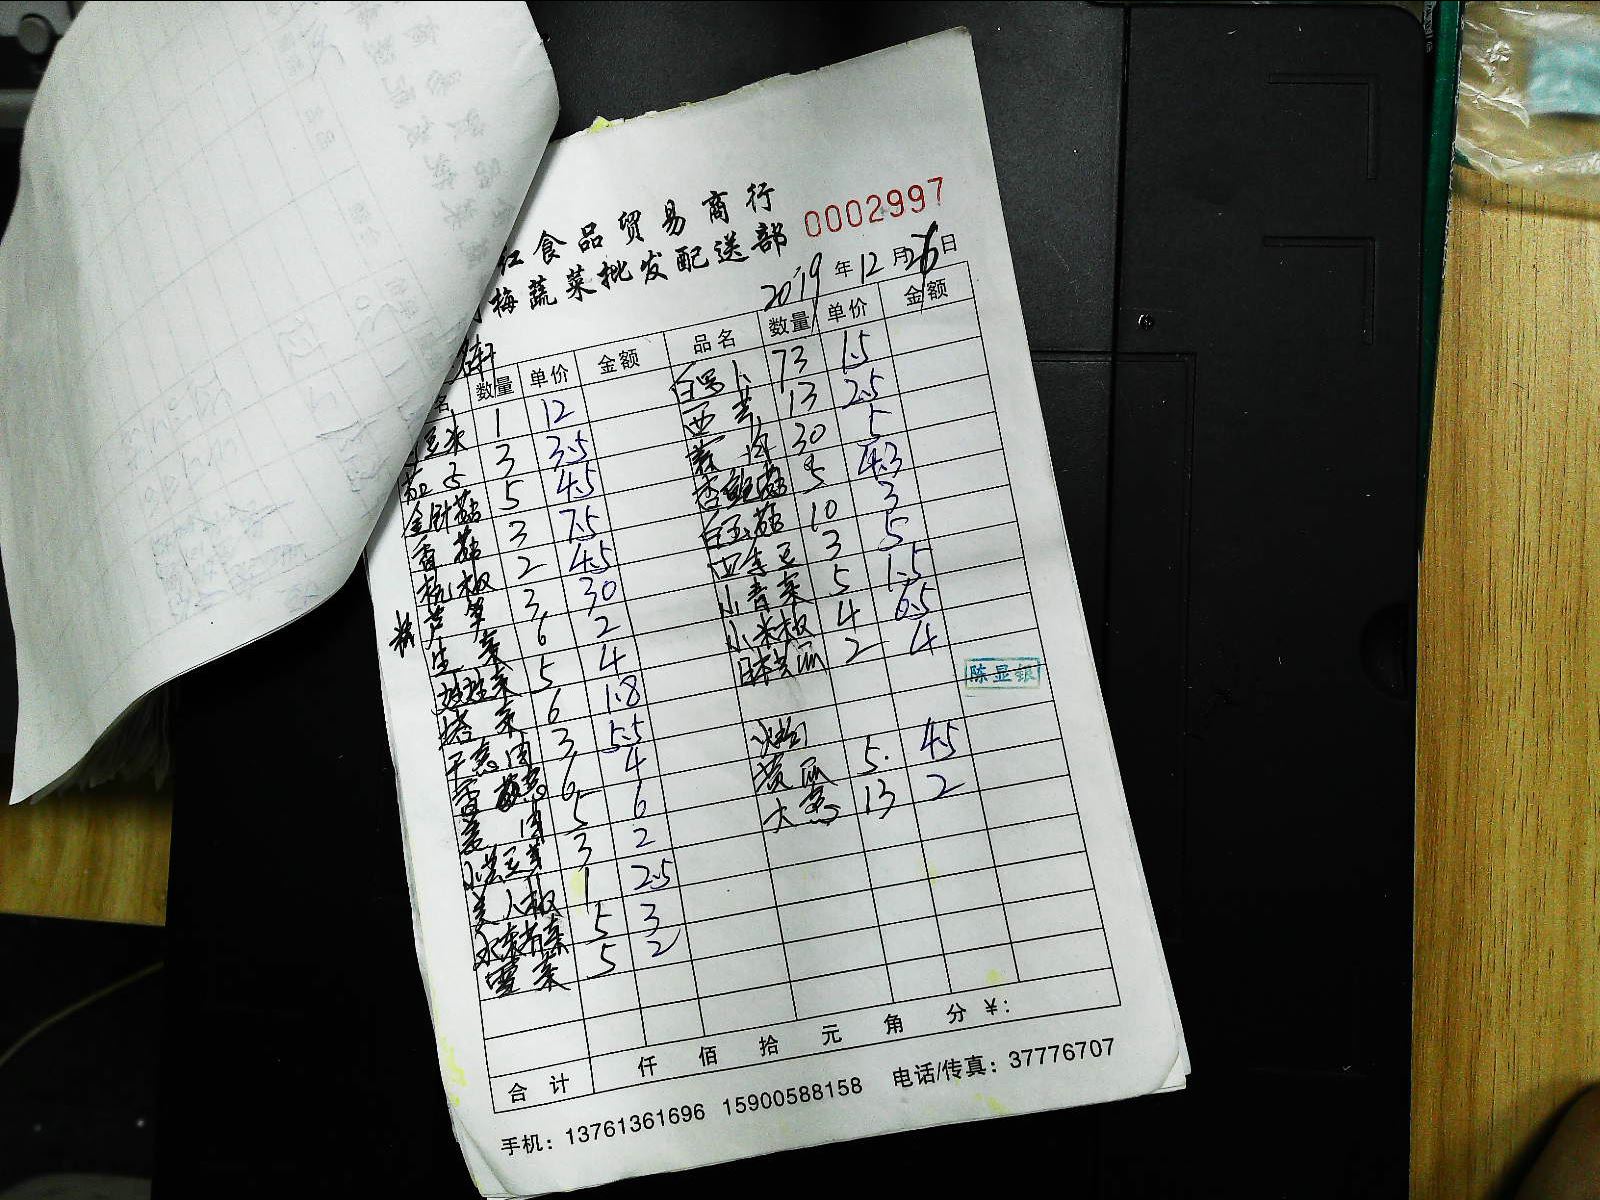 红食品贸易商行
梅蔬菜批发配送部
0002997
2019年12月26日
轩
名 数量 单价 金额 品名 数量 单价 金额
1 12 73 1.5
3 3.5 西芹 13 2.5
金针菇 5 4.5 30 5
香菇 3 7.5 杏鲍菇 5 4.3
杭椒 2 4.5 白玉菇 10 3
芦笋 3 30 四季豆 3 5
生菜 6 2 小青菜 5 1.5
娃娃菜 5 4 小米椒 4 6.5
塔菜 6 1.8 日本南瓜 2 4
干葱肉 3 5.5
陈显银
6 4
5 6 黄瓜 5 4.5
小黄豆芽 3 2 大葱 13 2
美人椒 1 2.5
5 3
雪菜 5 2
合计 仟 佰 拾 元 角 分 ¥:
手机：13761361696 15900588158 电话/传真：37776707